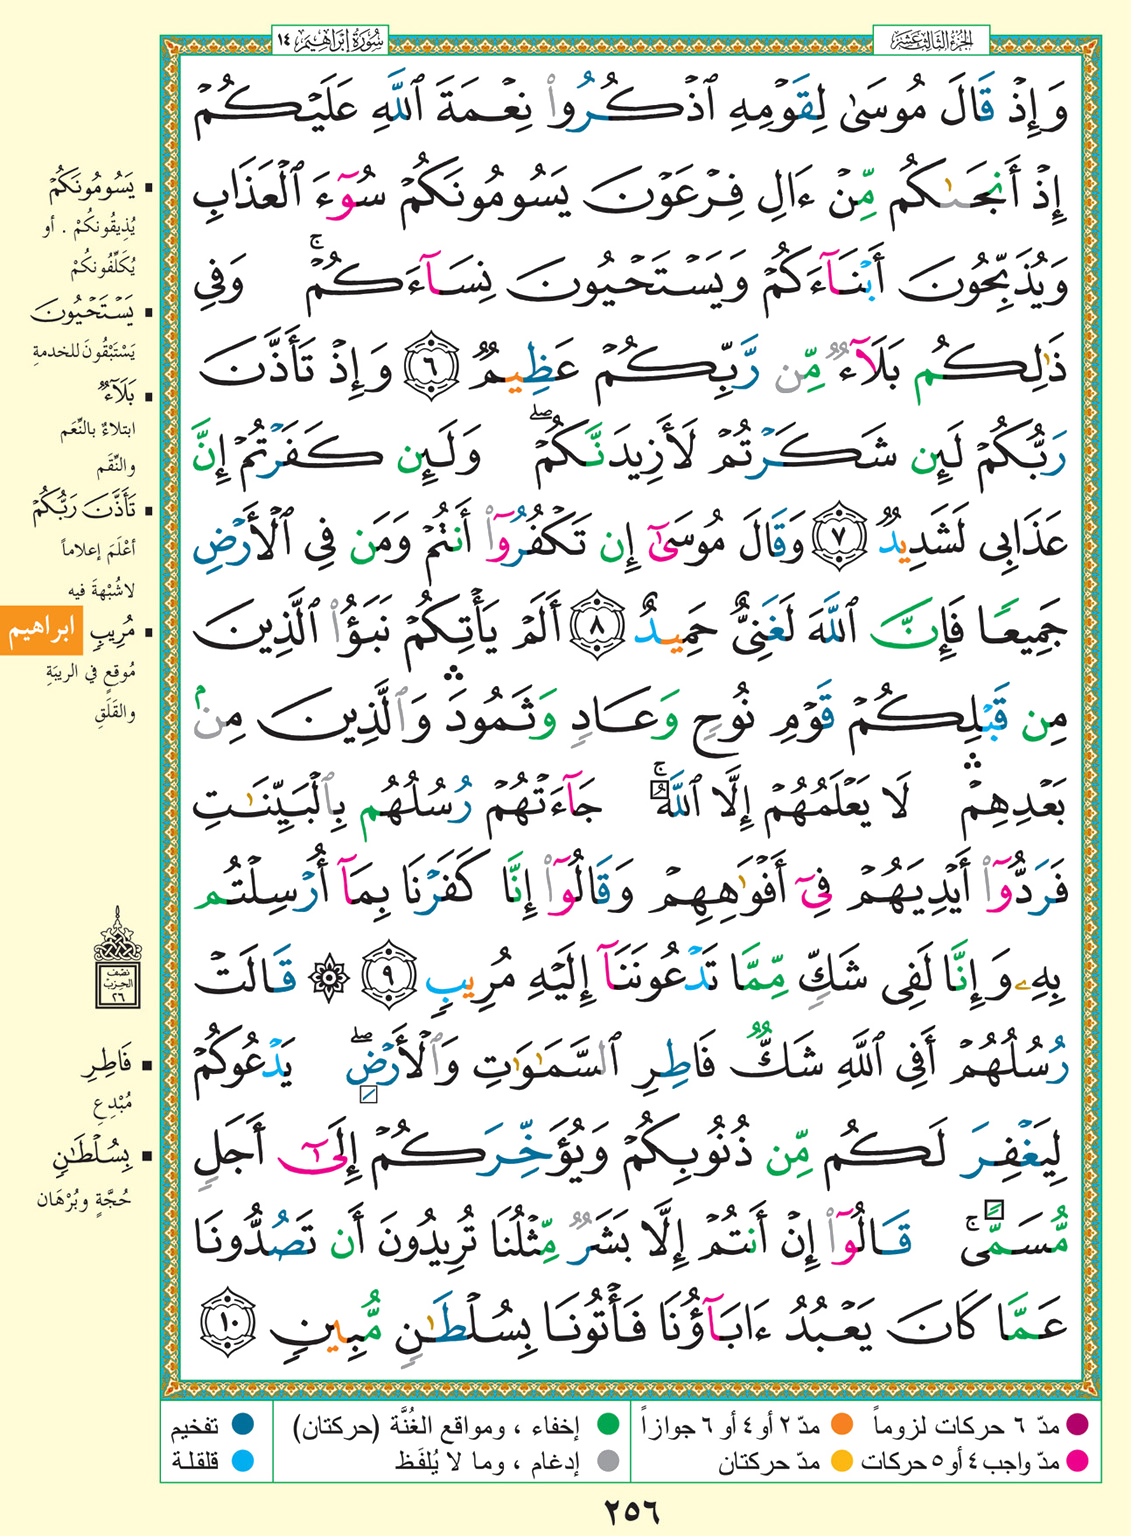 الجزء الثالث عشر
سورة إبراهيم ١٤
وَإِذْ قَالَ مُوسَىٰ لِقَوْمِهِ ٱذْكُرُوا۟ نِعْمَةَ ٱللَّهِ عَلَيْكُمْ
إِذْ أَنجَىٰكُم مِّنْ ءَالِ فِرْعَوْنَ يَسُومُونَكُمْ سُوٓءَ ٱلْعَذَابِ
وَيُذَبِّحُونَ أَبْنَآءَكُمْ وَيَسْتَحْيُونَ نِسَآءَكُمْ ۚ وَفِى
ذَٰلِكُم بَلَآءٌ مِّن رَّبِّكُمْ عَظِيمٌ ٦ وَإِذْ تَأَذَّنَ
رَبُّكُمْ لَئِن شَكَرْتُمْ لَأَزِيدَنَّكُمْ ۖ وَلَئِن كَفَرْتُمْ إِنَّ
عَذَابِى لَشَدِيدٌ ٧ وَقَالَ مُوسَىٰٓ إِن تَكْفُرُوٓا۟ أَنتُمْ وَمَن فِى ٱلْأَرْضِ
جَمِيعًا فَإِنَّ ٱللَّهَ لَغَنِىٌّ حَمِيدٌ ٨ أَلَمْ يَأْتِكُمْ نَبَؤُا۟ ٱلَّذِينَ
مِن قَبْلِكُمْ قَوْمِ نُوحٍ وَعَادٍ وَثَمُودَ ۛ وَٱلَّذِينَ مِنۢ
بَعْدِهِمْ ۛ لَا يَعْلَمُهُمْ إِلَّا ٱللَّهُ ۚ جَآءَتْهُمْ رُسُلُهُم بِٱلْبَيِّنَٰتِ
فَرَدُّوٓا۟ أَيْدِيَهُمْ فِىٓ أَفْوَٰهِهِمْ وَقَالُوٓا۟ إِنَّا كَفَرْنَا بِمَآ أُرْسِلْتُم
بِهِۦ وَإِنَّا لَفِى شَكٍّ مِّمَّا تَدْعُونَنَآ إِلَيْهِ مُرِيبٍ ٩ ۞ قَالَتْ
رُسُلُهُمْ أَفِى ٱللَّهِ شَكٌّ فَاطِرِ ٱلسَّمَٰوَٰتِ وَٱلْأَرْضِ ۖ يَدْعُوكُمْ
لِيَغْفِرَ لَكُم مِّن ذُنُوبِكُمْ وَيُؤَخِّرَكُمْ إِلَىٰٓ أَجَلٍ
مُّسَمًّى ۚ قَالُوٓا۟ إِنْ أَنتُمْ إِلَّا بَشَرٌ مِّثْلُنَا تُرِيدُونَ أَن تَصُدُّونَا
عَمَّا كَانَ يَعْبُدُ ءَابَآؤُنَا فَأْتُونَا بِسُلْطَٰنٍ مُّبِينٍ ١٠
يَسُومُونَكُمْ
يُذِيقُونكُمْ . أو
يُكَلِّفُونكُمْ
يَسْتَحْيُونَ
يَسْتَبْقُونَ للخدمةِ
بَلَآءٌ
ابتلاءٌ بالنِّعَم
والنِّقَم
تَأَذَّنَ رَبُّكُمْ
أعْلَمَ إعلاماً
لا شُبْهةَ فيه
ابراهيم
مُرِيبٍ
مُوقعٍ في الريبَةِ
والقَلَقِ
نصف
الحزب
٢٦
فَاطِرِ
مُبْدِعِ
بِسُلْطَٰنٍ
حُجَّةٍ وبُرْهَان
مدّ ٦ حركات لزوماً مدّ ٢ أو ٤ أو ٦ جوازاً إخفاء ، ومواقع الغُنَّة (حركتان) تفخيم
مدّ واجب ٤ أو ٥ حركات مدّ حركتان إدغام ، وما لا يُلفَظ قلقلة
٢٥٦